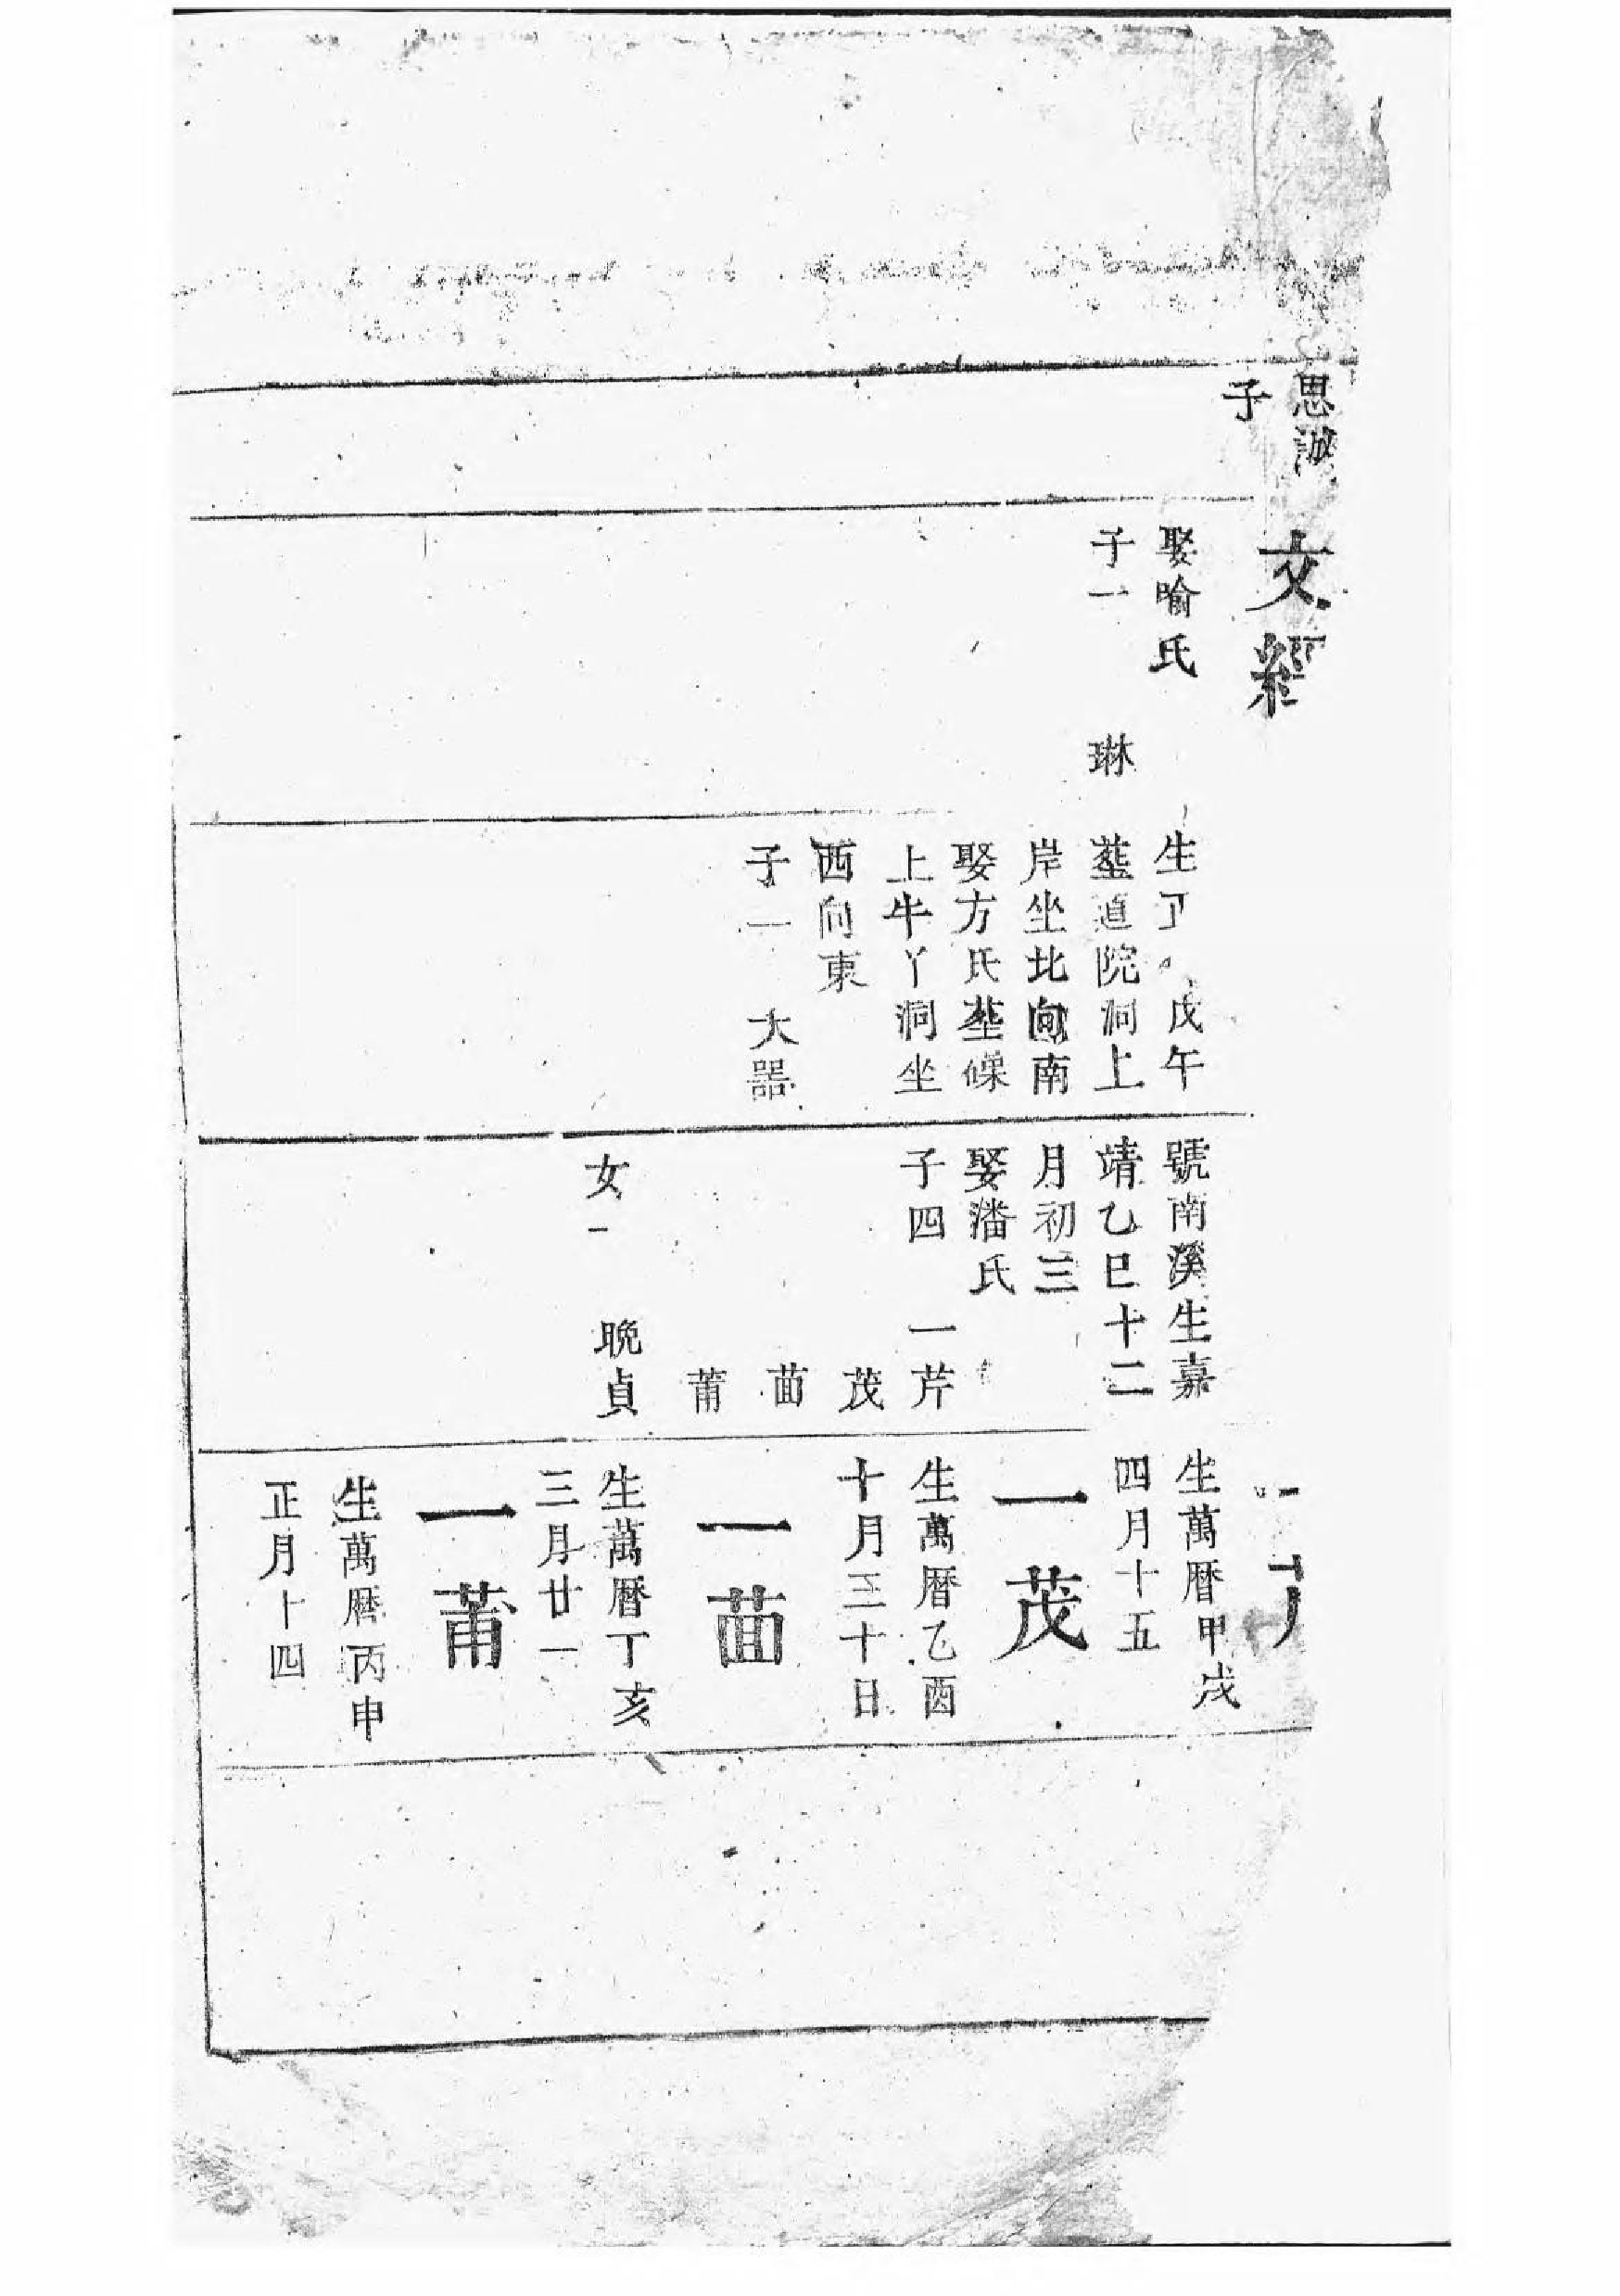 思誠
子
文經
娶喻氏
子一 琳
生 戊午
塟道院洞上
岸坐北向南
娶方氏塟
上牛丫洞坐
西向東
子一 大器
號南溪生嘉
靖乙巳十二
月初三
娶潘氏
子四 一芹
茂
莔
莆
女一 晚貞
生萬曆甲戌
四月十五
一茂
生萬曆乙酉
十月三十日
一莔
生萬曆丁亥
三月廿一
一莆
生萬曆丙申
正月十四